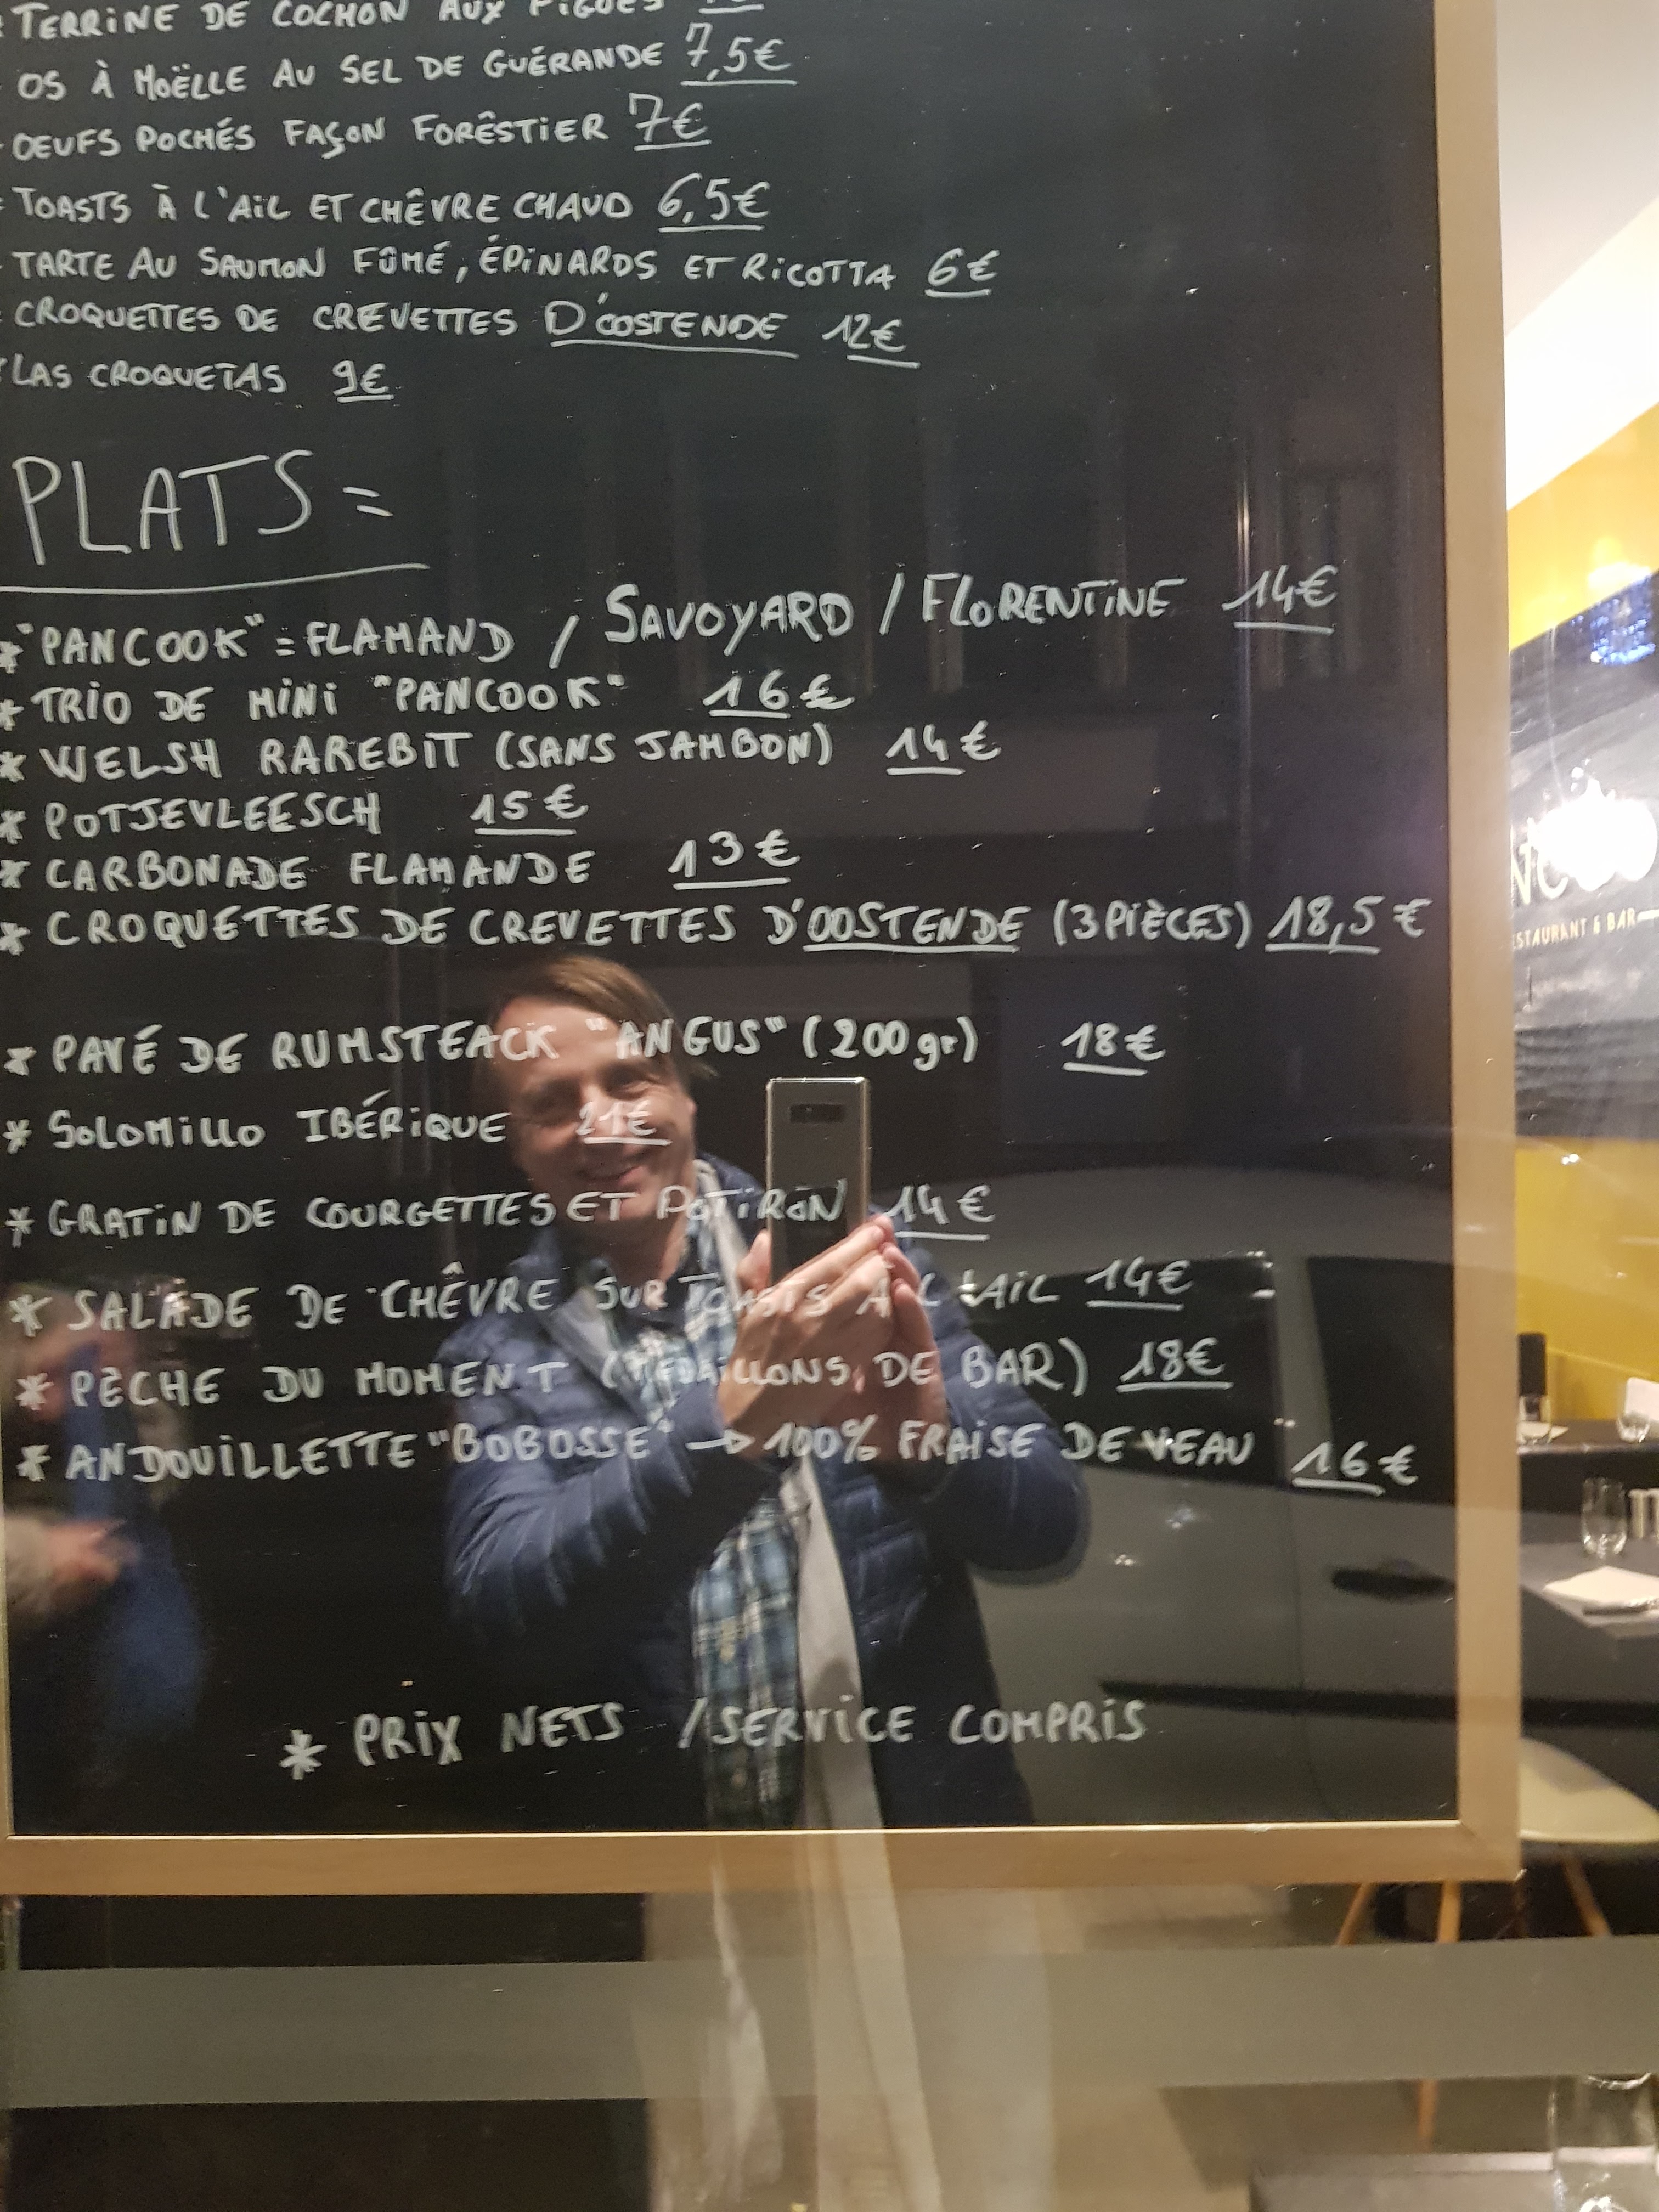 * TERRINE DE COCHON AUX FIGUES
- OS À MOËLLE AU SEL DE GUÉRANDE 7,5€
- OEUFS POCHÉS FAÇON FORÊSTIER 7€
- TOASTS À L'AIL ET CHÊVRE CHAUD 6,5€
- TARTE AU SAUMON FÛMÉ, ÉPINARDS ET RICOTTA 6€
- CROQUETTES DE CREVETTES D'OOSTENDE 12€
LAS CROQUETAS 9€
PLATS =
* "PANCOOK" = FLAMAND / SAVOYARD / FLORENTINE 14€
* TRIO DE MINI "PANCOOK" 16€
* WELSH RAREBIT (SANS JAMBON) 14€
* POTJEVLEESCH 15€
* CARBONADE FLAMANDE 13€
* CROQUETTES DE CREVETTES D'OOSTENDE (3 PIÈCES) 18,5€
* PAVÉ DE RUMSTEACK "ANGUS" (200 gr) 18€
* SOLOMILLO IBÉRIQUE 21€
* GRATIN DE COURGETTES ET POTIRON 14€
* SALADE DE CHÊVRE SUR TOASTS À L'AIL 14€
* PÈCHE DU MOMENT (MEDAILLONS DE BAR) 18€
* ANDOUILLETTE "BOBOSSE" → 100% FRAISE DE VEAU 16€
* PRIX NETS / SERVICE COMPRIS
ESTAURANT & BAR